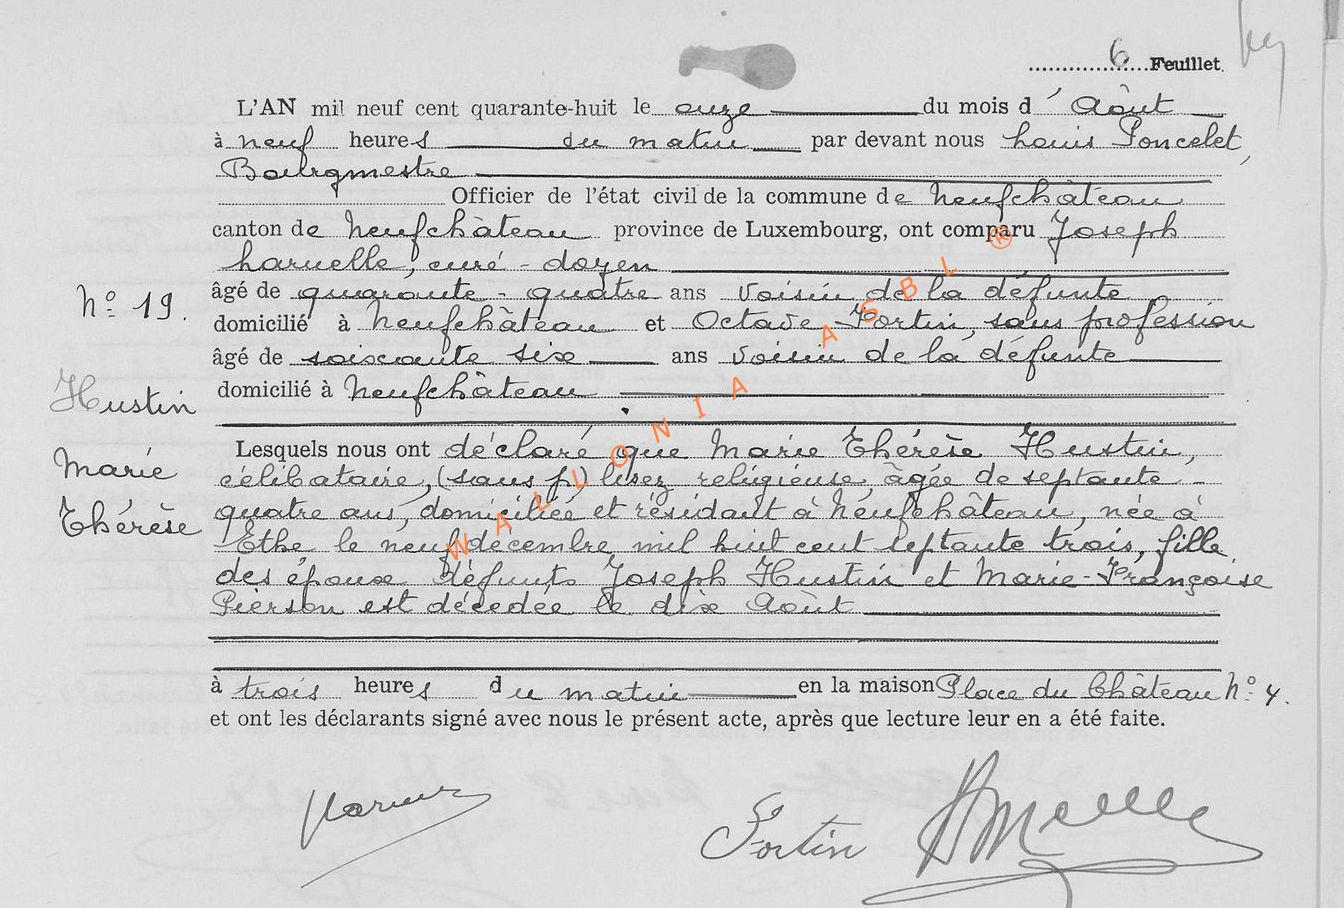 6 Feuillet.
L'AN mil neuf cent quarante-huit le onze du mois d'Août
à neuf heures du matin par devant nous Louis Poncelet,
Bourgmestre
Officier de l'état civil de la commune de Neufchâteau
canton de Neufchâteau province de Luxembourg, ont comparu Joseph
Laruelle, curé-doyen
âgé de quarante-quatre ans voisin de la défunte
N° 19.
domicilié à Neufchâteau et Octave Fortin, sans profession
âgé de soixante six ans voisin de la défunte
domicilié à Neufchâteau
Hustin
Marie
Thérèse
Lesquels nous ont déclaré que Marie Thérèse Hustin,
célibataire, (sans p) lisez religieuse, âgée de septante-
quatre ans, domiciliée et résidant à Neufchâteau, née à
Ethe le neuf décembre mil huit cent septante trois, fille
des époux défunts Joseph Hustin et Marie-Françoise
Pierson est décédée le dix Août
à trois heures du matin en la maison Place du Château N° 4.
et ont les déclarants signé avec nous le présent acte, après que lecture leur en a été faite.
Fortin
WALLONIA ASBL ®